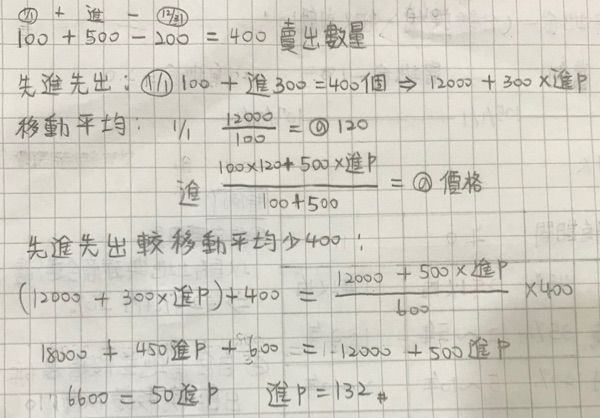 1/1 + 進 - 12/31
100 + 500 - 200 = 400 賣出數量
先進先出: 1/1 100 + 進300 = 400個 ⇒ 12000 + 300×進P
移動平均: 1/1 12000/100 = @120
進 100×120+500×進P / 100+500 = @價格
先進先出較移動平均少400:
(12000 + 300×進P)+400 = 12000 + 500×進P / 600 ×400
18000 + 450進P + 600 = 12000 + 500進P
6600 = 50進P 進P = 132#